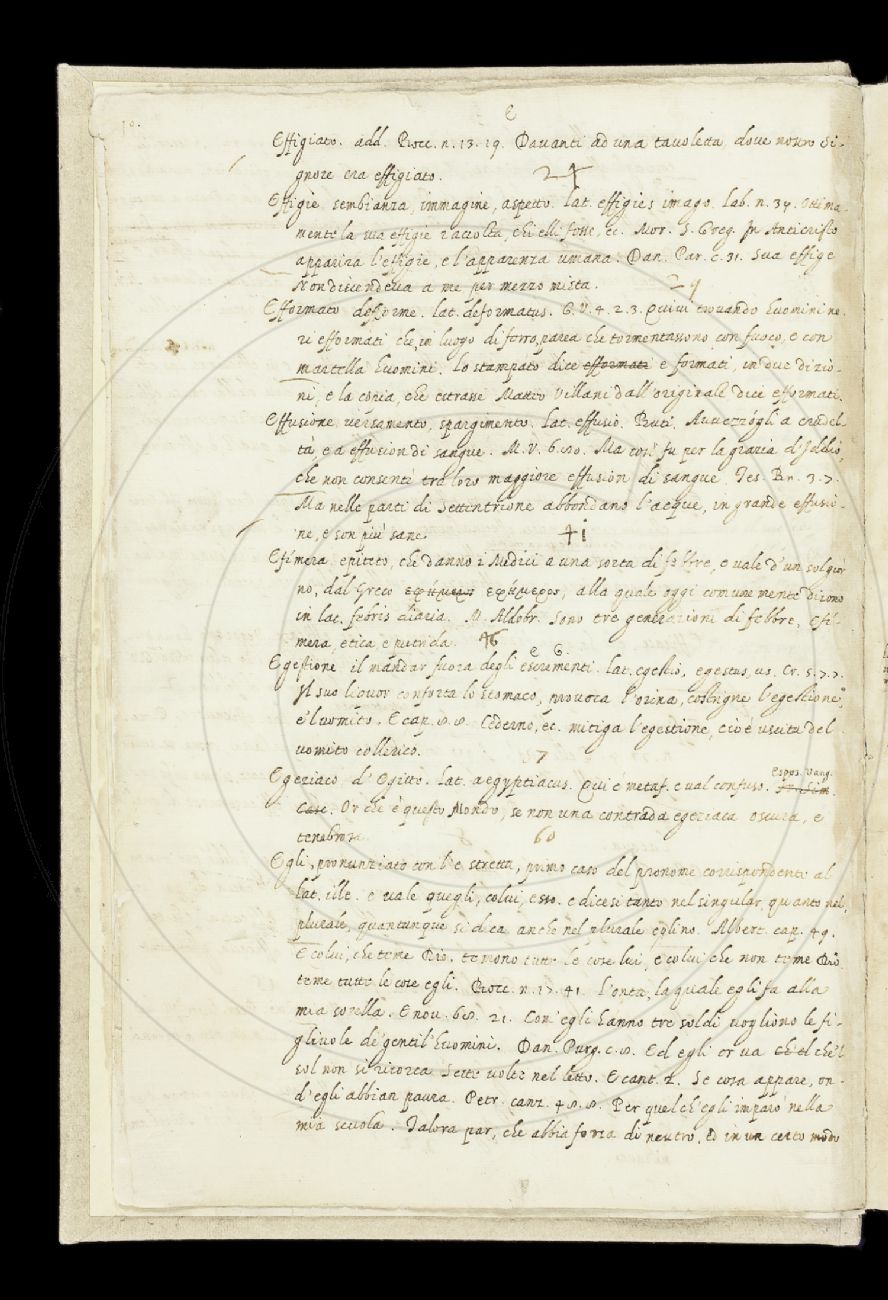 10.
E
Effigiato. add. Bocc. n. 13. 19. Davanti ad una tavoletta, dove nostro Si-
gnore era effigiato.
24
Effigie sembianza, immagine, aspetto. lat. effigies imago. Lab. n. 34. Ottima-
mente la sua effigie raccolta, chi elli fosse, ec. Mor. S. Greg. In Anticristo
apparirà l'effigie, e l'apparenza umana. Dan. Par. c. 31. Sua effige
Non discendeva a me per mezzo mista.
29
Efformato deforme. lat. deformatus. G. V. 4. 2. 3. Quivi trovando huomini ne-
ri efformati che, in luogo di ferro, parea che tormentassono con fuoco, e con
martella huomini. Lo stampato dice efformati e formati, in due dizio-
ni, e la copia, che estrasse Matteo Villani dall'originale dice efformati.
Effusione versamento, spargimento. lat. effusio. Buti. Avvezzógli a crudel-
tà, e a effusion di sangue. M. V. 6. 80. Ma così fu per la grazia d'Iddio,
che non consentì tra loro maggiore effusion di sangue. Tes. Br. 3. 7.
Ma nelle parti di Settentrione abbondano l'acque, in grande effusio-
ne, e son più sane.
41
Efimera epiteto, che danno i Medici a una sorta di febbre, e vale d'un sol gior-
no, dal Greco εφήμερος, alla quale oggi comunemente dicono
in lat. febris diaria. M. Aldobr. Sono tre generazioni di febbre, efi-
mera, etica e putrida.
46
E G.
Egestione il mandar fuora degli escrementi. lat. egestio, egestus, us. Cr. 5. 7. 7.
Il suo liquor conforta lo stomaco, provoca l'orina, costrigne l'egestione,
e'l vomito. E cap. 8. 8. Cederno, ec. mitiga l'egestione, cioè uscita del
vomito collerico.
57
Egeziaco d'Egitto. lat. aegyptiacus. Qui è metaf. e val confuso. Espos. Vang.
Or che è questo Mondo, se non una contrada egeziaca oscura, e
tenebrosa.
60
Egli, pronunziato con l'e stretta, primo caso del pronome corrispondente al
lat. ille. e vale quegli, colui, esso. e dicesi tanto nel singular, quanto nel
plurale, quantunque si dica anche nel plurale eglino. Albert. cap. 49.
E colui, che teme Dio. temono tutte le cose lui, e colui che non teme Dio
teme tutte le cose egli. Bocc. n. 17. 41. L'onta, la quale egli fa alla
mia sorella. E nov. 68. 21. Con egli hanno tre soldi vogliono le fi-
gliuole de' gentil'huomini. Dan. Purg. c. 8. Ed egli or va ch'el che'l
sol non si ricorca Sette volte nel letto. E cant. 2. Se cosa appare, on-
d'egli abbian paura. Petr. canz. 48. 8. Per quel ch'egli imparò nella
mia scuola. Talora par, che abbia forza di neutro, ed in un certo modo